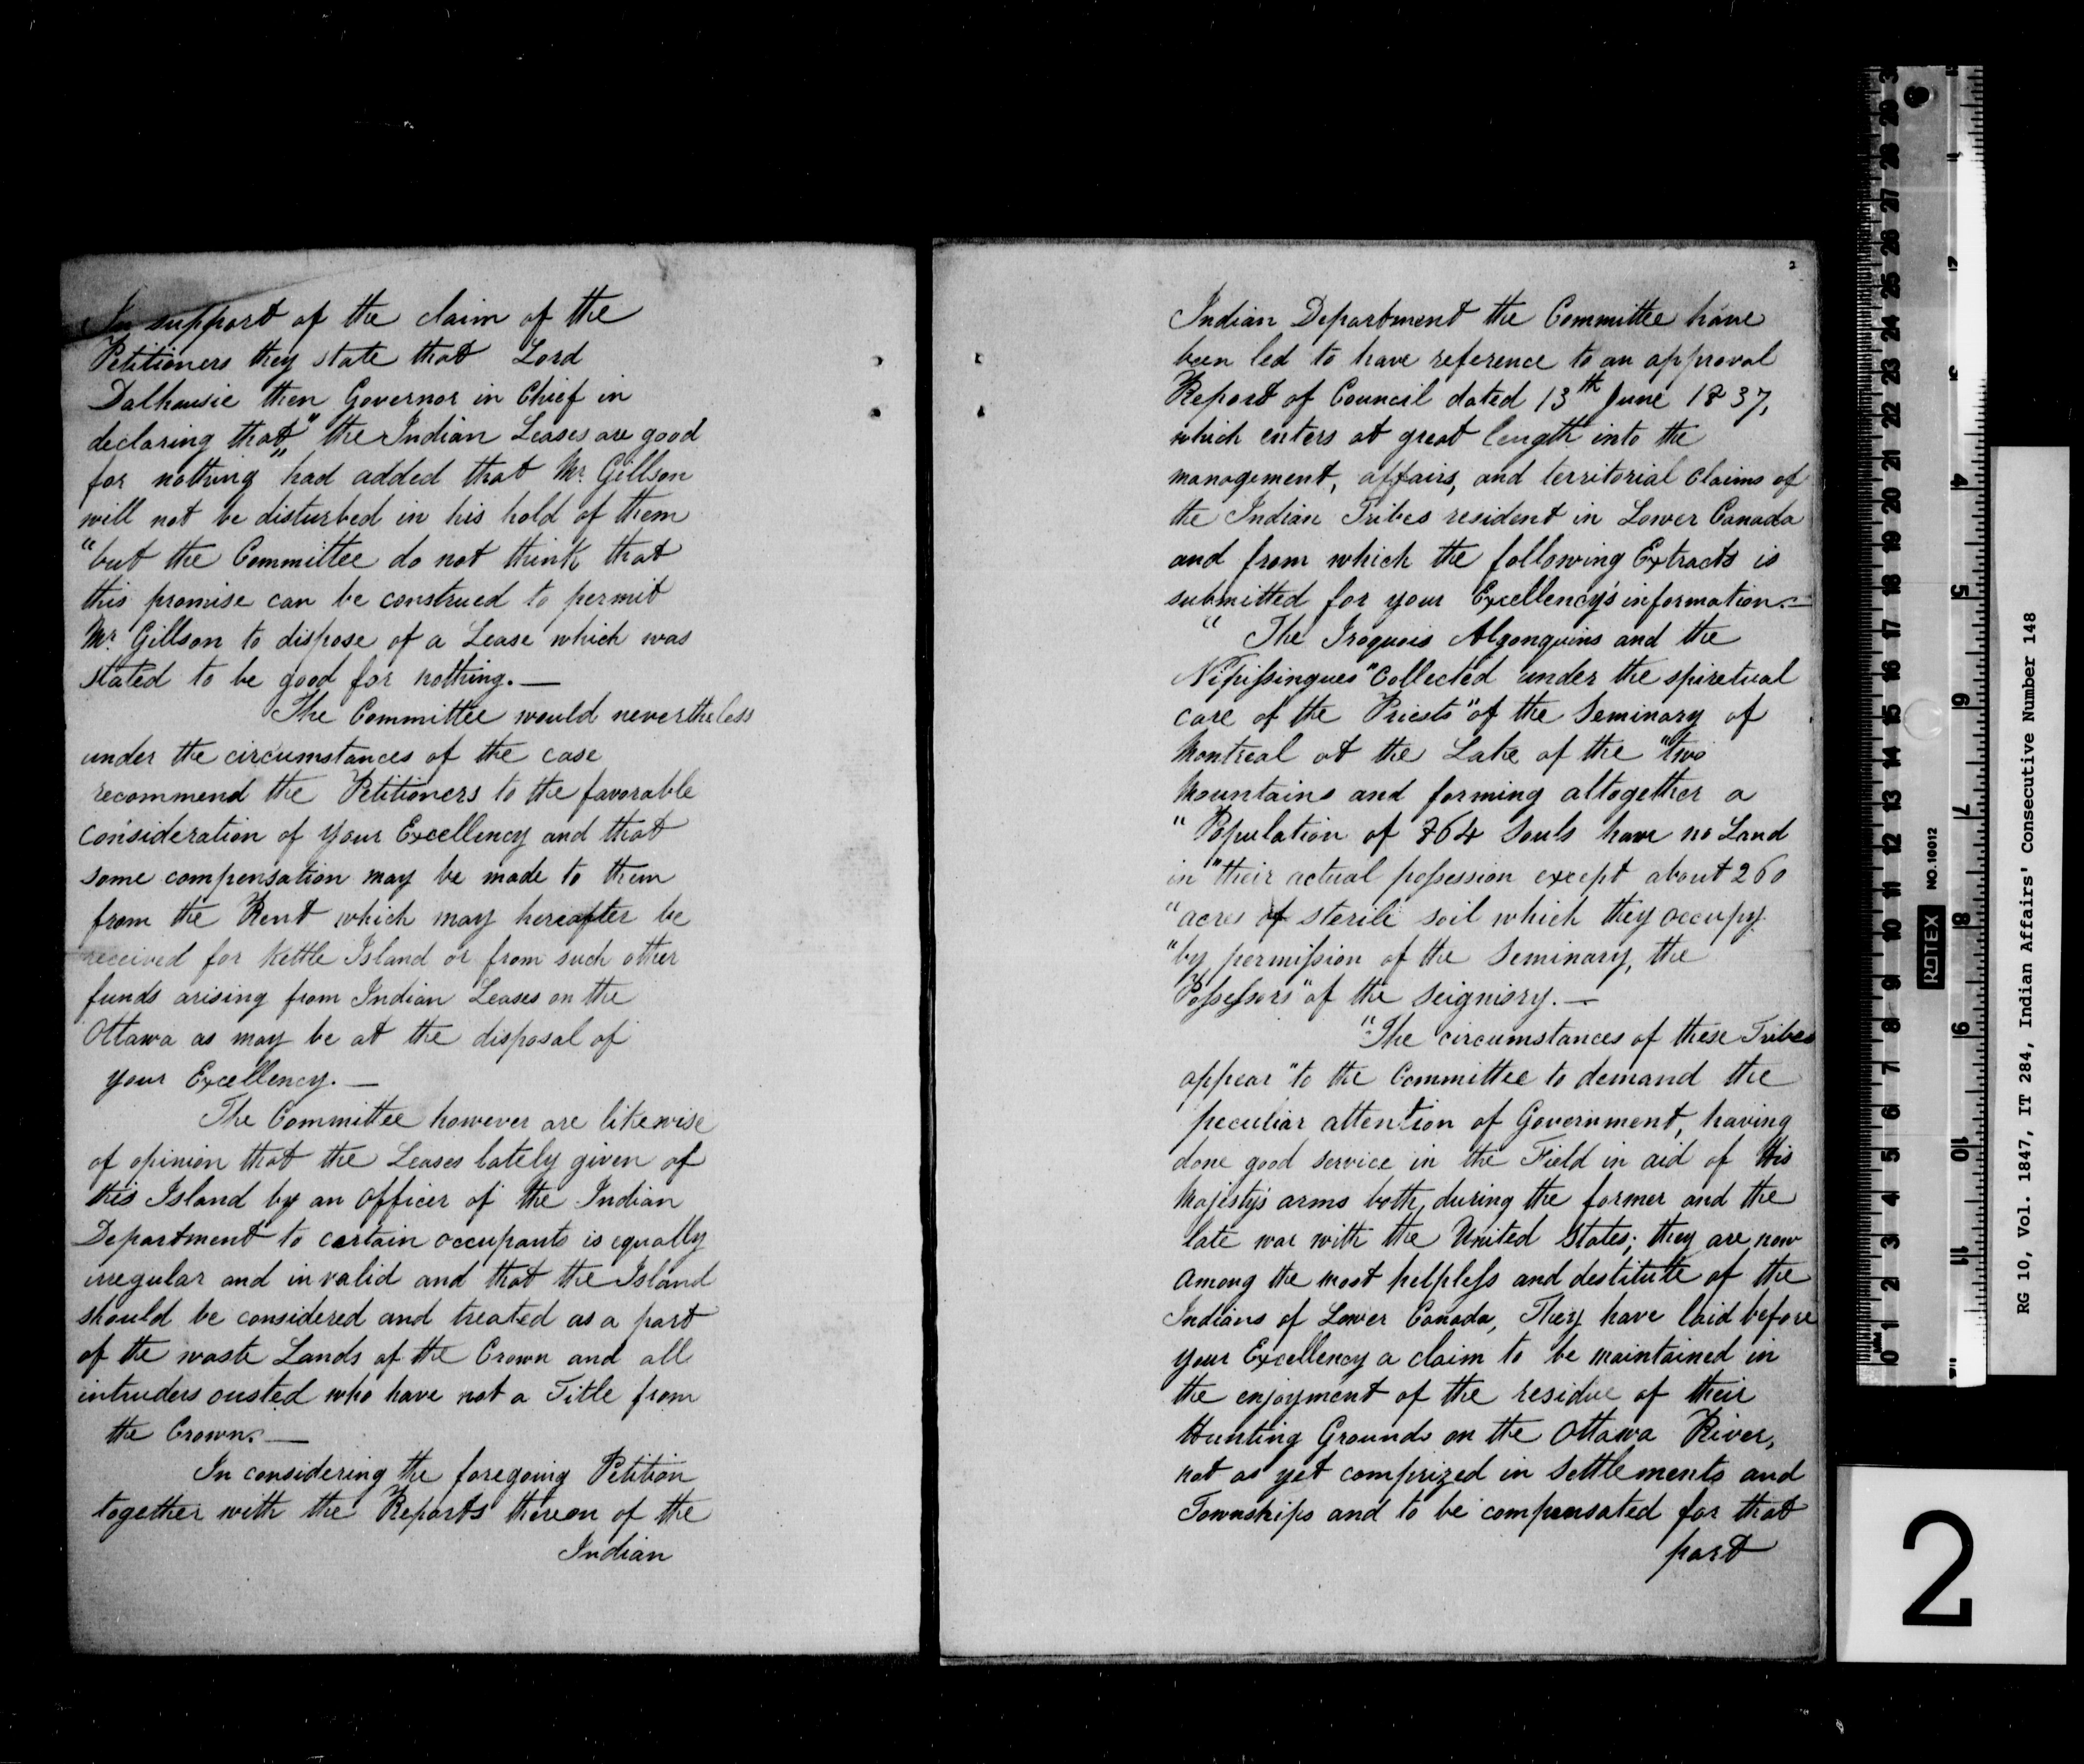 In support of the claim of the
Petitioners they state that Lord
Dalhousie then Governor in Chief in
declaring that,, "the Indian Leases are good
for nothing" had added that Mr. Gillson
will not be disturbed in his hold of them
"but the Committee do not think that
this promise can be construed to permit
Mr. Gillson to dispose of a Lease which was
stated to be good for nothing.—
The Committee would nevertheless
under the circumstances of the case
recommend the Petitioners to the favorable
consideration of Your Excellency and that
some compensation may be made to them
from the Rent which may hereafter be
received for Kettle Island or from such other
funds arising from Indian Leases on the
Ottawa as may be at the disposal of
your Excellency.—
The Committee however are likewise
of opinion that the Leases lately given of
this Island by an Officer of the Indian
Department to certain occupants is equally
irregular and invalid and that the Island
should be considered and treated as a part
of the waste Lands of the Crown and all
intruders ousted who have not a Title from
the Crown.—
In considering the foregoing Petition
together with the Reports thereon of the
Indian
2
Indian Department the Committee have
been led to have reference to an approval
Report of Council dated 13th June 1837,
which enters at great length into the
management, affairs, and territorial Claims of
the Indian Tribes resident in Lower Canada
and from which the following Extracts is
submitted for your Excellency's information.—
" The Iroquois Algonquins and the
Nipissingues "Collected under the spiretual
care of the Priests "of the Seminary of
Montreal at the Lake of the "two
Mountains and forming altogether a
" Population of 864 Souls have no Land
in "their actual possession except about 260
"acres of sterile soil which they occupy
"by permission of the Seminary, the
Possessors "of the Seigniory.—
"The circumstances of these Tribes
appear "to the Committee to demand the
peculiar attention of Government, having
done good service in the Field in aid of His
Majesty's arms both, during the former and the
late war with the United States; they are now
among the most helpless and destitute of the
Indians of Lower Canada, They have laid before
your Excellency a claim to be maintained in
the enjoyment of the residue of their
Hunting Grounds on the Ottawa River,
not as yet comprized in Settlements and
Townships and to be compensated for that
part
RG 10, Vol. 1847, IT 284, Indian Affairs' Consecutive Number 148
ROTEX NO.10012
2